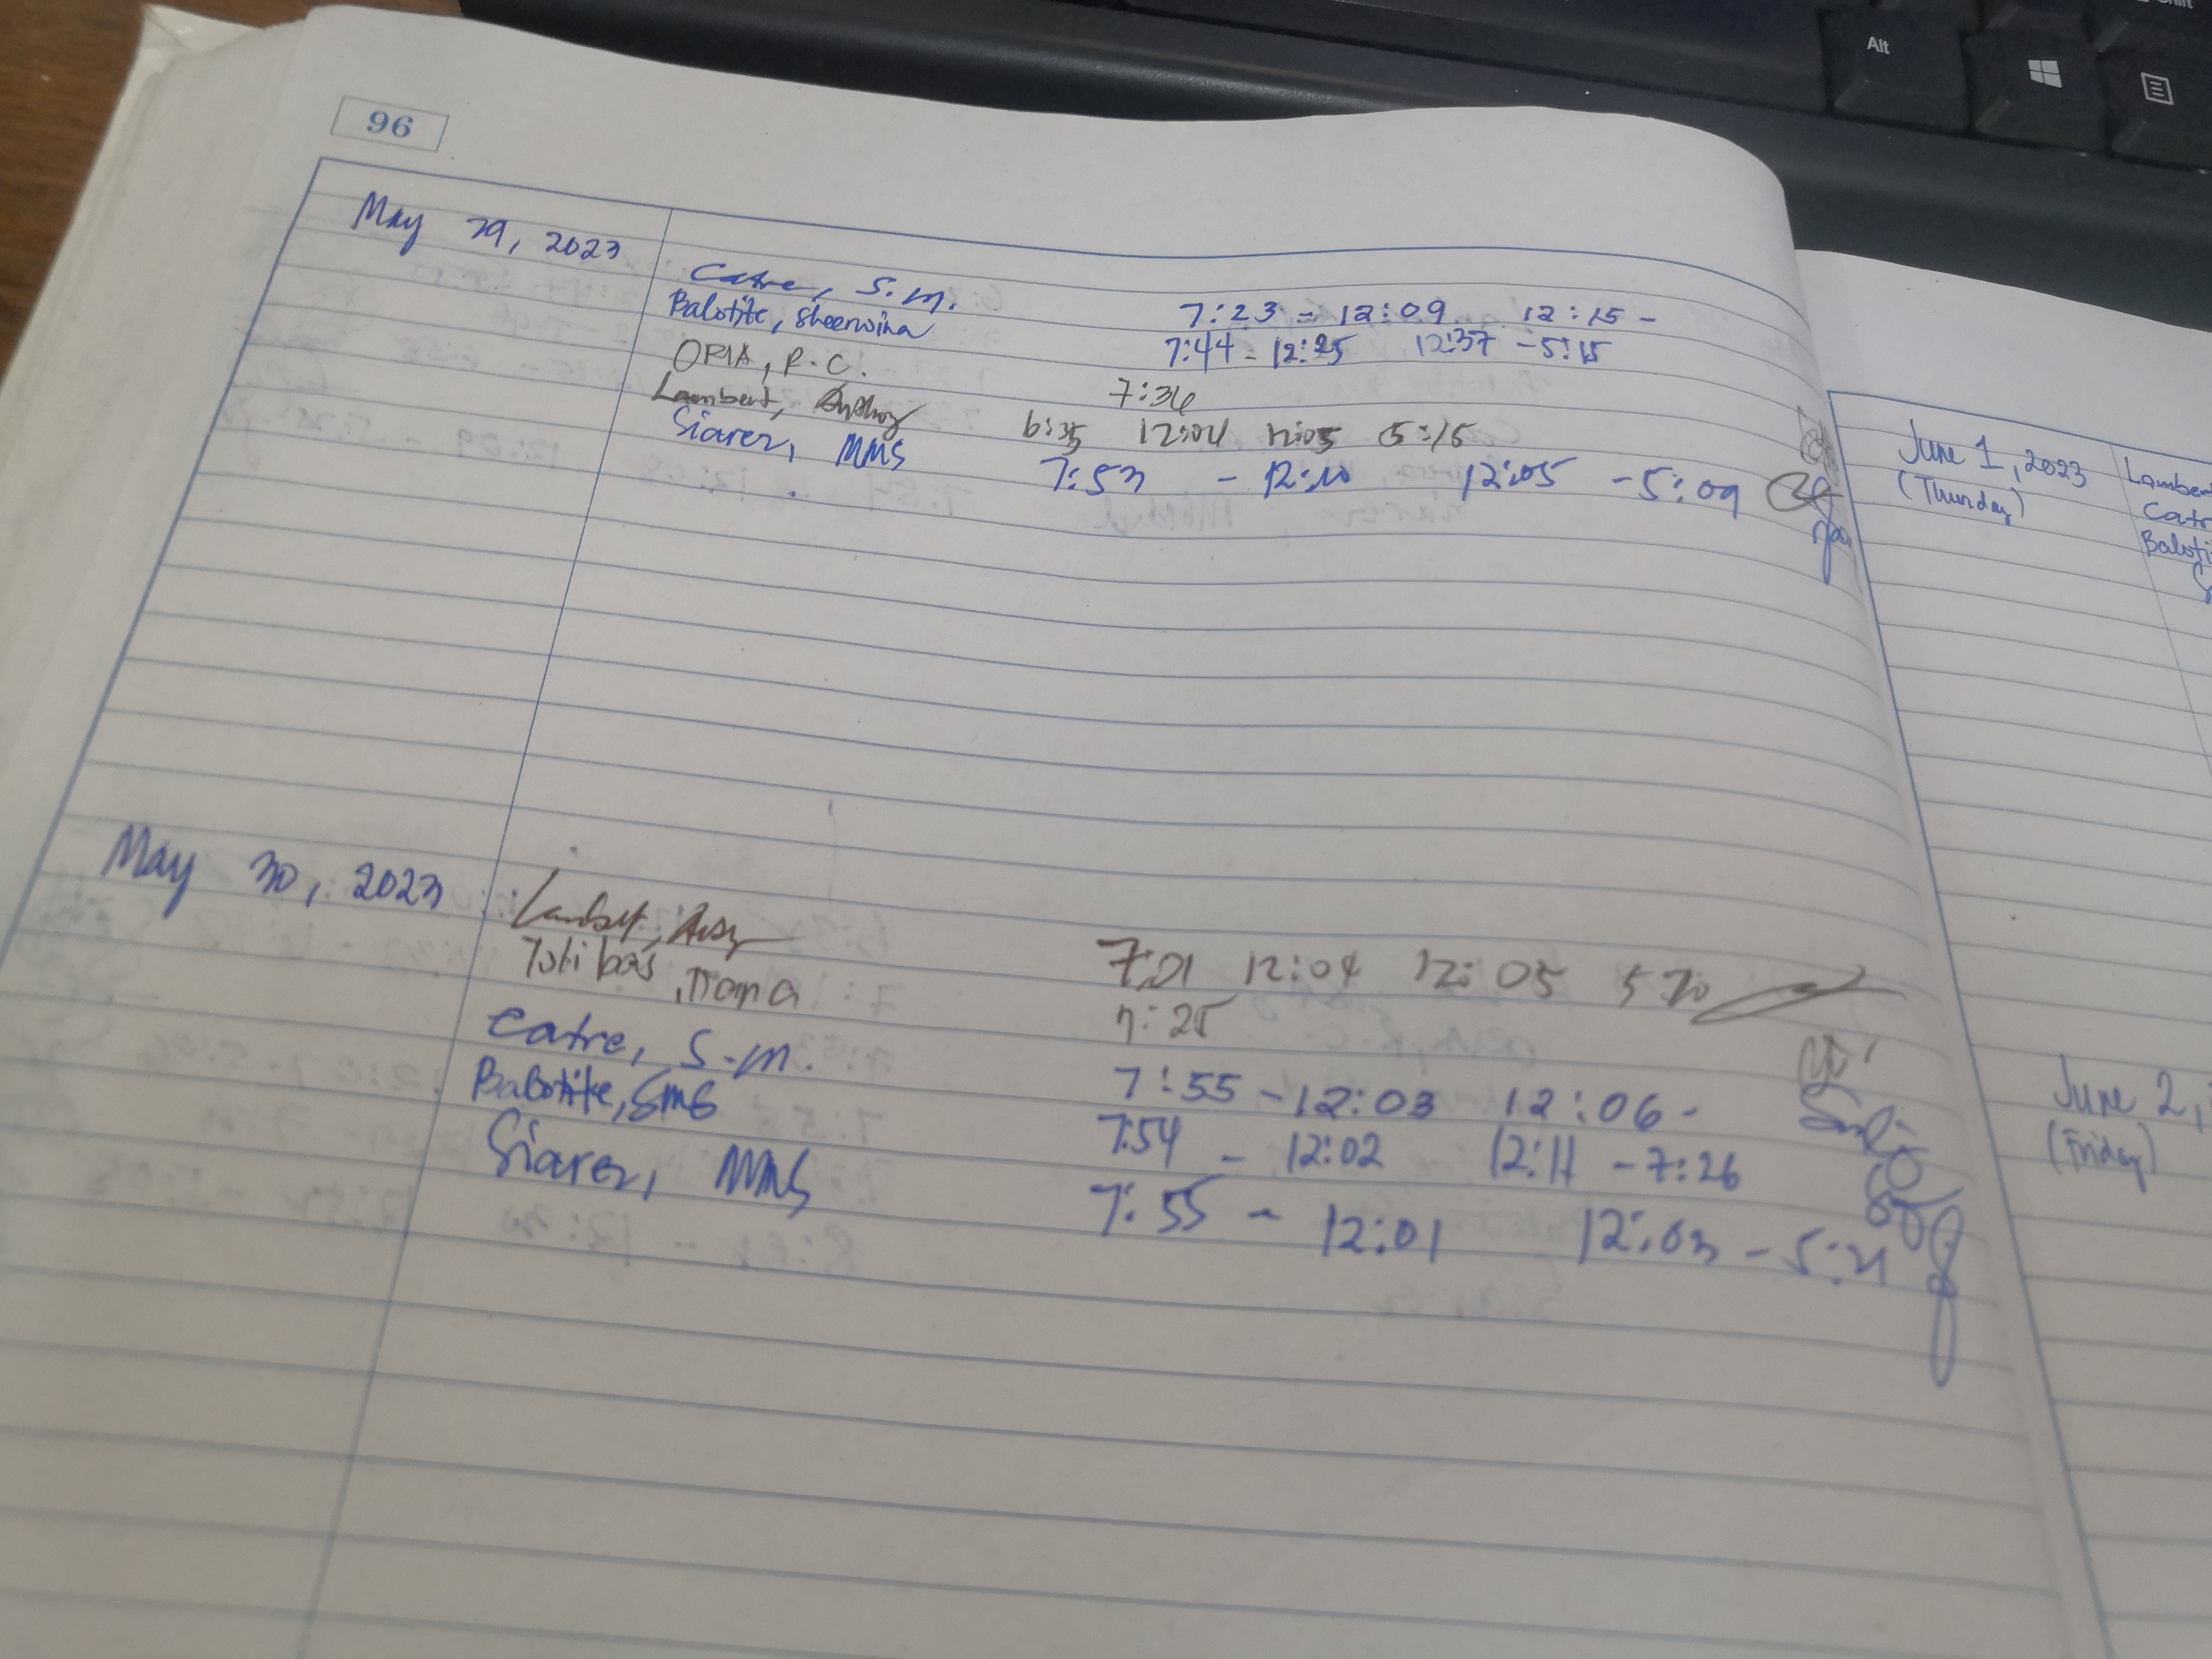 Alt
96
May 29, 2023
Catre, S.M.
7:23 - 12:09 12:15 -
Balotite, Sheerwina
7:44 - 12:25 12:37 - 5:15
ORIA, R.C.
7:36
Lambert, Anthony
6:35 12:04 12:05 5:15
Siarez, MMS
7:53 - 12:10 12:05 - 5:09
May 30, 2023
Lambert,
7:21 12:04 12:05 5:20
7:25
Catre, S.M.
7:55 - 12:03 12:06 -
Balotite, SMB
7:54 - 12:02 12:11 - 7:26
Siarez, MMS
7:55 - 12:01 12:03 - 5:21
June 1, 2023
(Thursday)
Lamber
Catr
Baloti
June 2,
(Friday)